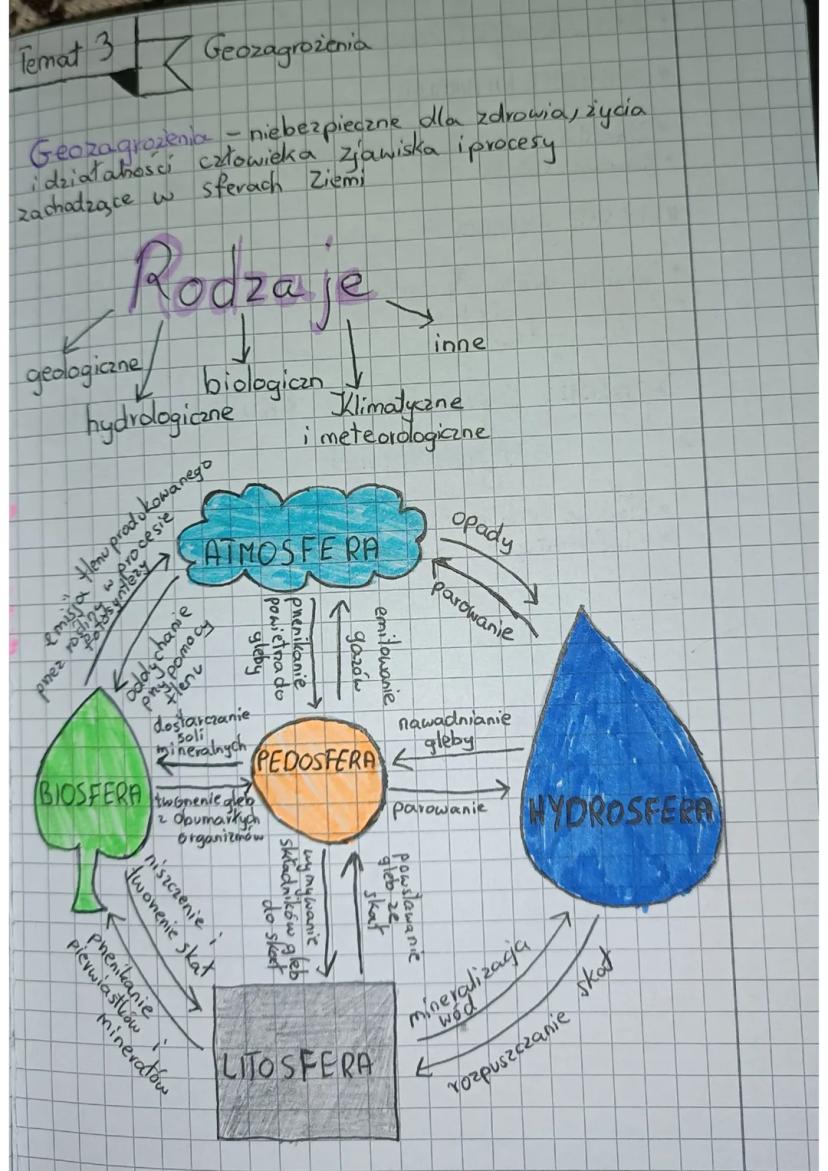 Temat 3
Geozagrożenia
Geozagrożenia - niebezpieczne dla zdrowia, życia
i działalności człowieka zjawiska i procesy
zachodzące w sferach Ziemi
Rodzaje
geologiczne
hydrologiczne
biologiczn
Klimatyczne
i meteorologiczne
inne
emisja tlenu produkowanego
przez rośliny w procesie
fotosyntezy
ATMOSFERA
opady
parowanie
oddychanie
przy pomocy
tlenu
przenikanie
powietrza do
gleby
emitowanie
gazów
dostarczanie
soli
mineralnych
PEDOSFERA
nawadnianie
gleby
BIOSFERA
tworzenie gleb
z obumarłych
organizmów
parowanie
HYDROSFERA
niszczenie i
tworzenie skał
wymywanie
składników gleb
do skał
powstawanie
gleb ze
skał
przenikanie
pierwiastków i
minerałów
LITOSFERA
mineralizacja
wód
rozpuszczanie skał